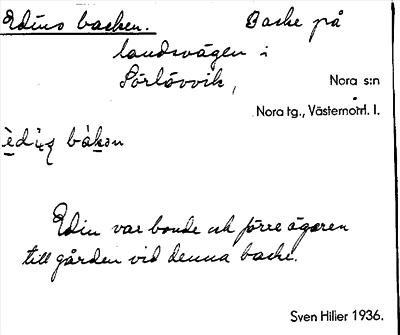 Edins backen. Backe på
landsvägen i
Sörlövvik, Nora s:n
Nora tg., Västernorrl. l.
bàkən
Edin var bonde och förre ägaren
till gården vid denna backe.
Sven Hiller 1936.